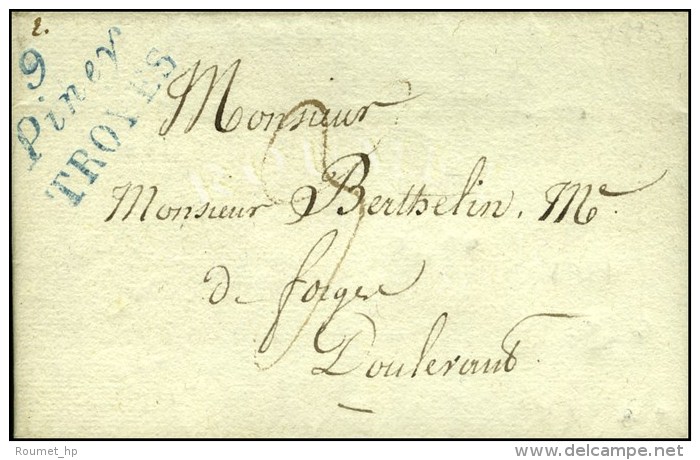 2.
9
Piney
TROYES
Monsieur
Monsieur Berthelin, Me
de forges
Doulevant
Roumet_hp
delcampe.net